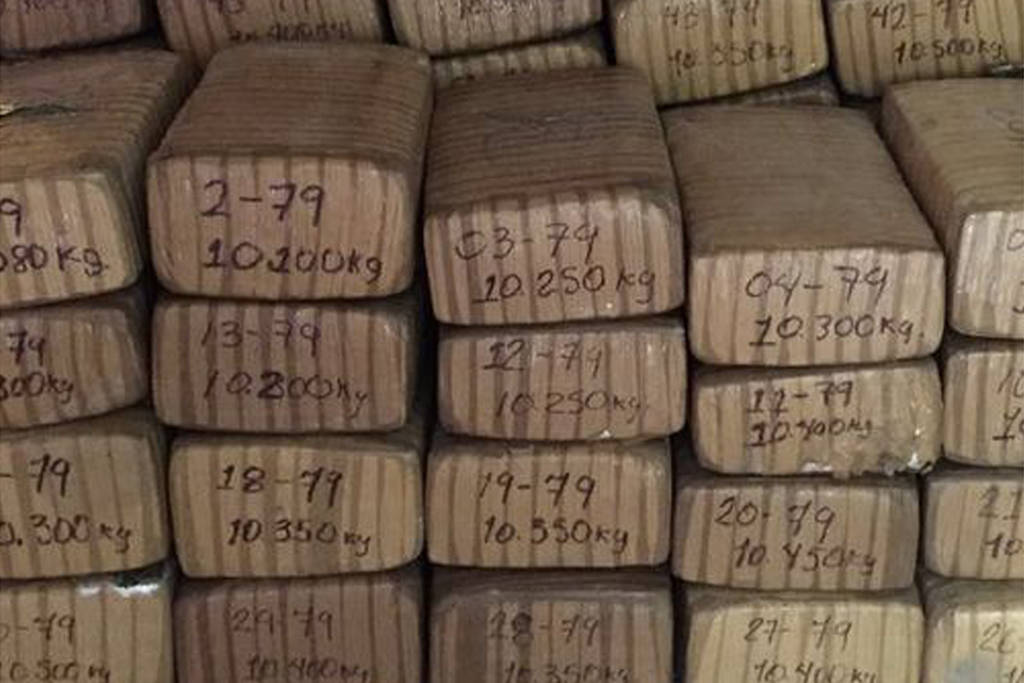 43-79
42-79
10.350kg
10.500kg
2-79
9
10.100kg
080kg.
03-79
10.250 kg
04-79
10.300kg.
79
300kg
13-79
10.200kg
12-79
10.250kg
11-79
10.400kg
-79
0.300kg
18-79
10.350kg
19-79
10.550kg
20-79
10.450kg
21
10.
-79
0.500kg
29-79
10.400kg
28-79
10.350kg
27-79
10.400kg
26